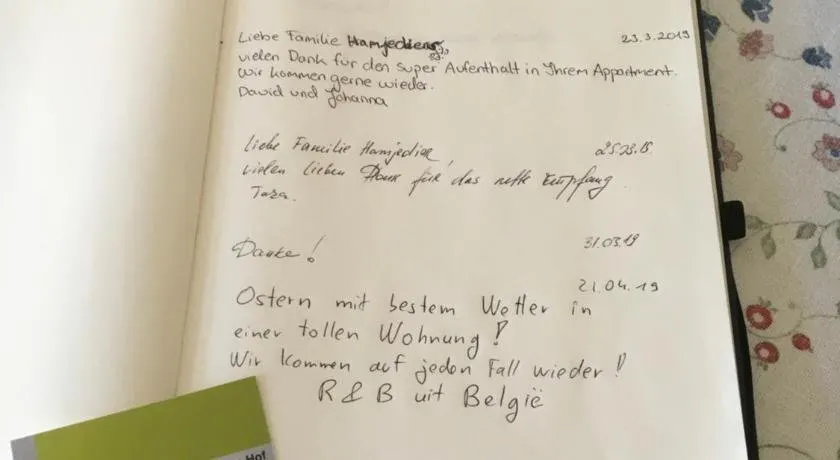 23.3.2019
Liebe Familie
vielen Dank für den super Aufenthalt in Ihrem Appartment.
Wir kommen gerne wieder.
David und Johanna
Liebe Familie
vielen lieben Dank für das nette Empfang
Danke!
31.03.19
21.04.19
Ostern mit bestem Wetter in
einer tollen Wohnung!
Wir kommen auf jeden Fall wieder!
R & B uit België
Ho!